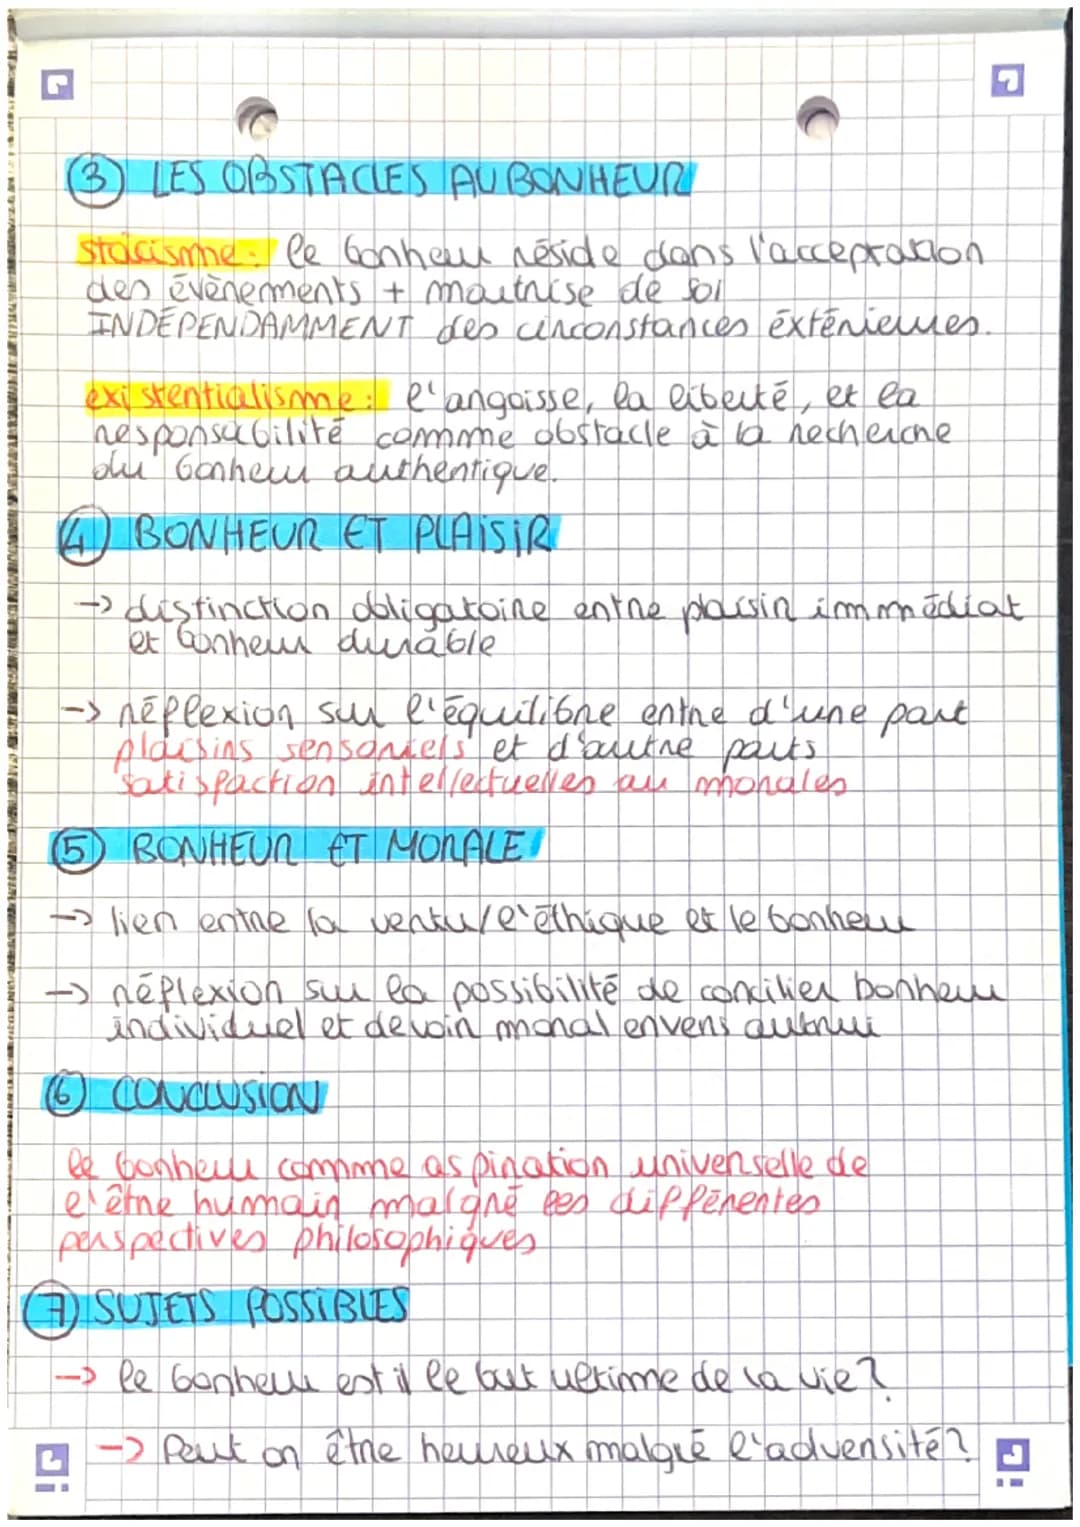 ③ LES OBSTACLES AU BONHEUR
stoïcisme : le bonheur réside dans l'acceptation
des évènements + maîtrise de soi
INDÉPENDAMMENT des circonstances extérieures.
existentialisme : l'angoisse, la liberté, et la
responsabilité comme obstacle à la recherche
du bonheur authentique.
④ BONHEUR ET PLAISIR
-> distinction obligatoire entre plaisir immédiat
et bonheur durable
-> réflexion sur l'équilibre entre d'une part
plaisirs sensoriels et d'autre parts
satisfaction intellectuelles ou morales
⑤ BONHEUR ET MORALE
-> lien entre la vertu/l'éthique et le bonheur
-> réflexion sur la possibilité de concilier bonheur
individuel et devoir moral envers autrui
⑥ CONCLUSION
le bonheur comme aspiration universelle de
l'être humain malgré les différentes
perspectives philosophiques
⑦ SUJETS POSSIBLES
-> le bonheur est il le but ultime de la vie ?
-> Peut on être heureux malgré l'adversité ?